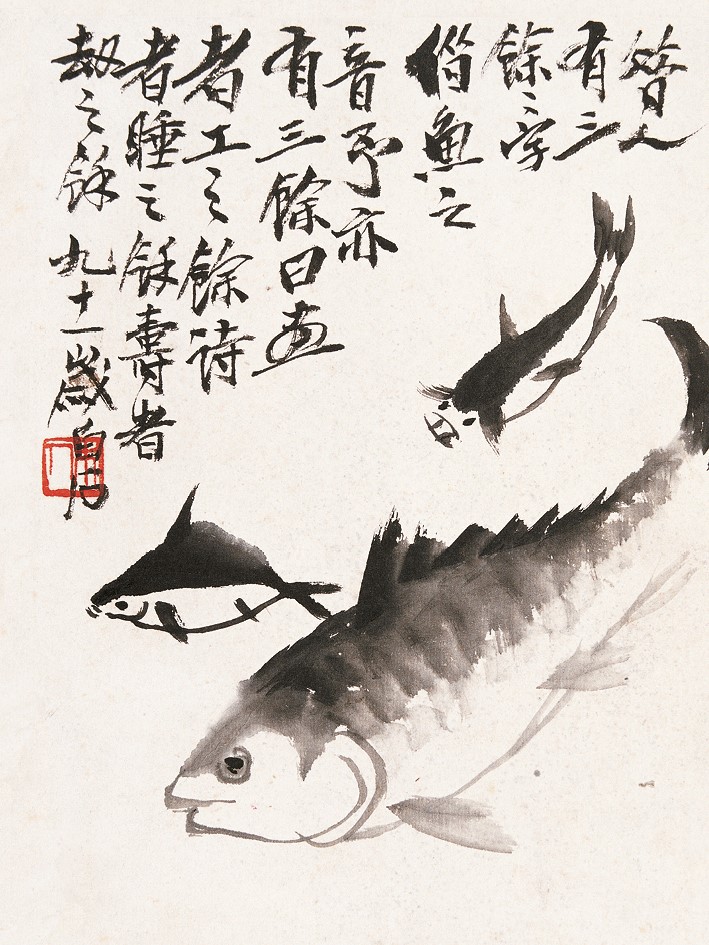 昔人
有三
餘〻字
借魚之
音予亦
有三餘曰画
者工之餘詩
者睡之餘壽者
劫之餘 九十一歲白石